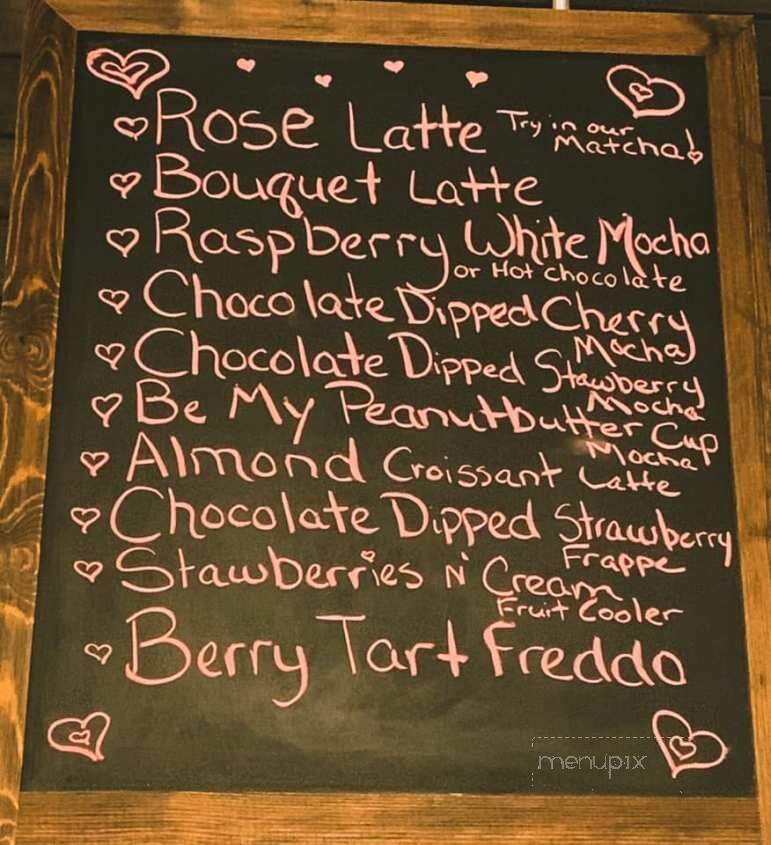 Rose Latte Try in our
Matcha!
Bouquet Latte
Raspberry White Mocha
or Hot chocolate
Chocolate Dipped Cherry
Mocha
Chocolate Dipped Stawberry
Mocha
Be My Peanutbutter Cup
Mocha
Almond Croissant Latte
Chocolate Dipped Strawberry
Frappe
Stawberries N' Cream
Fruit Cooler
Berry Tart Freddo
menupix